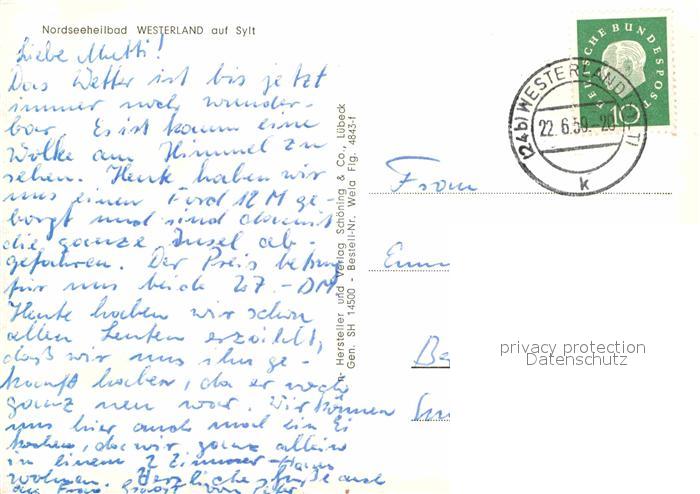 Nordseeheilbad WESTERLAND auf Sylt
Liebe Mutti!
Das Wetter ist bis jetzt
immer noch wunder-
bar. Es ist kaum eine
Wolke am Himmel zu
sehen. Heute haben wir
uns einen Ford 12 M ge-
borgt und sind damit
die ganze Insel ab-
gefahren. Der Preis betrug
für uns beide 27.- DM.
Heute haben wir schon
allen Leuten erzählt,
daß wir uns ihn ge-
kauft haben, da er noch
ganz neu war. Wir können
uns hier auch mal ein Ei
kochen, da wir ganz alleine
in einem 2 Zimmer-Haus
wohnen. Herzliche Grüße auch
an Frau von
Hersteller und Verlag Schöning & Co., Lübeck
Gen. SH 14500 - Bestell-Nr. Wela Fig. 4843-f
DEUTSCHE BUNDESPOST
10
(24b) WESTERLAND
22.6.59.-20
k
Frau
Emm
Be
privacy protection
Datenschutz